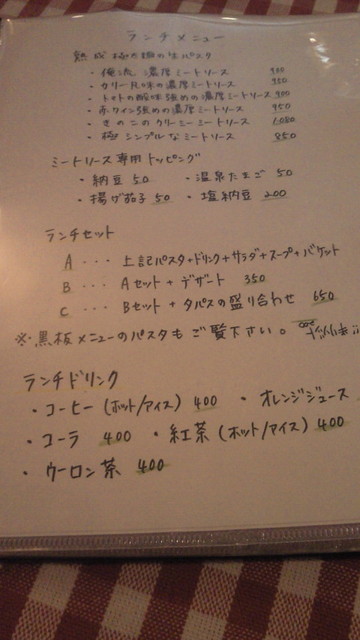 ランチメニュー
熟成 極太麺の生パスタ
・俺流 濃厚ミートソース 900
・カリー風味の濃厚ミートソース 950
・トマトの酸味強めの濃厚ミートソース 900
・赤ワイン強めの濃厚ミートソース 950
・きのこのクリーミーミートソース 1080
・極シンプルなミートソース 850
ミートソース専用トッピング
・納豆 50 ・温泉たまご 50
・揚げ茄子 50 ・塩納豆 200
ランチセット
A ・・・ 上記パスタ+ドリンク+サラダ+スープ+バケット
B ・・・ Aセット+デザート 350
C ・・・ Bセット+タパスの盛り合わせ 650
※黒板メニューのパスタもご覧下さい。
ランチドリンク
・コーヒー(ホット/アイス) 400 ・オレンジジュース
・コーラ 400 ・紅茶(ホット/アイス) 400
・ウーロン茶 400